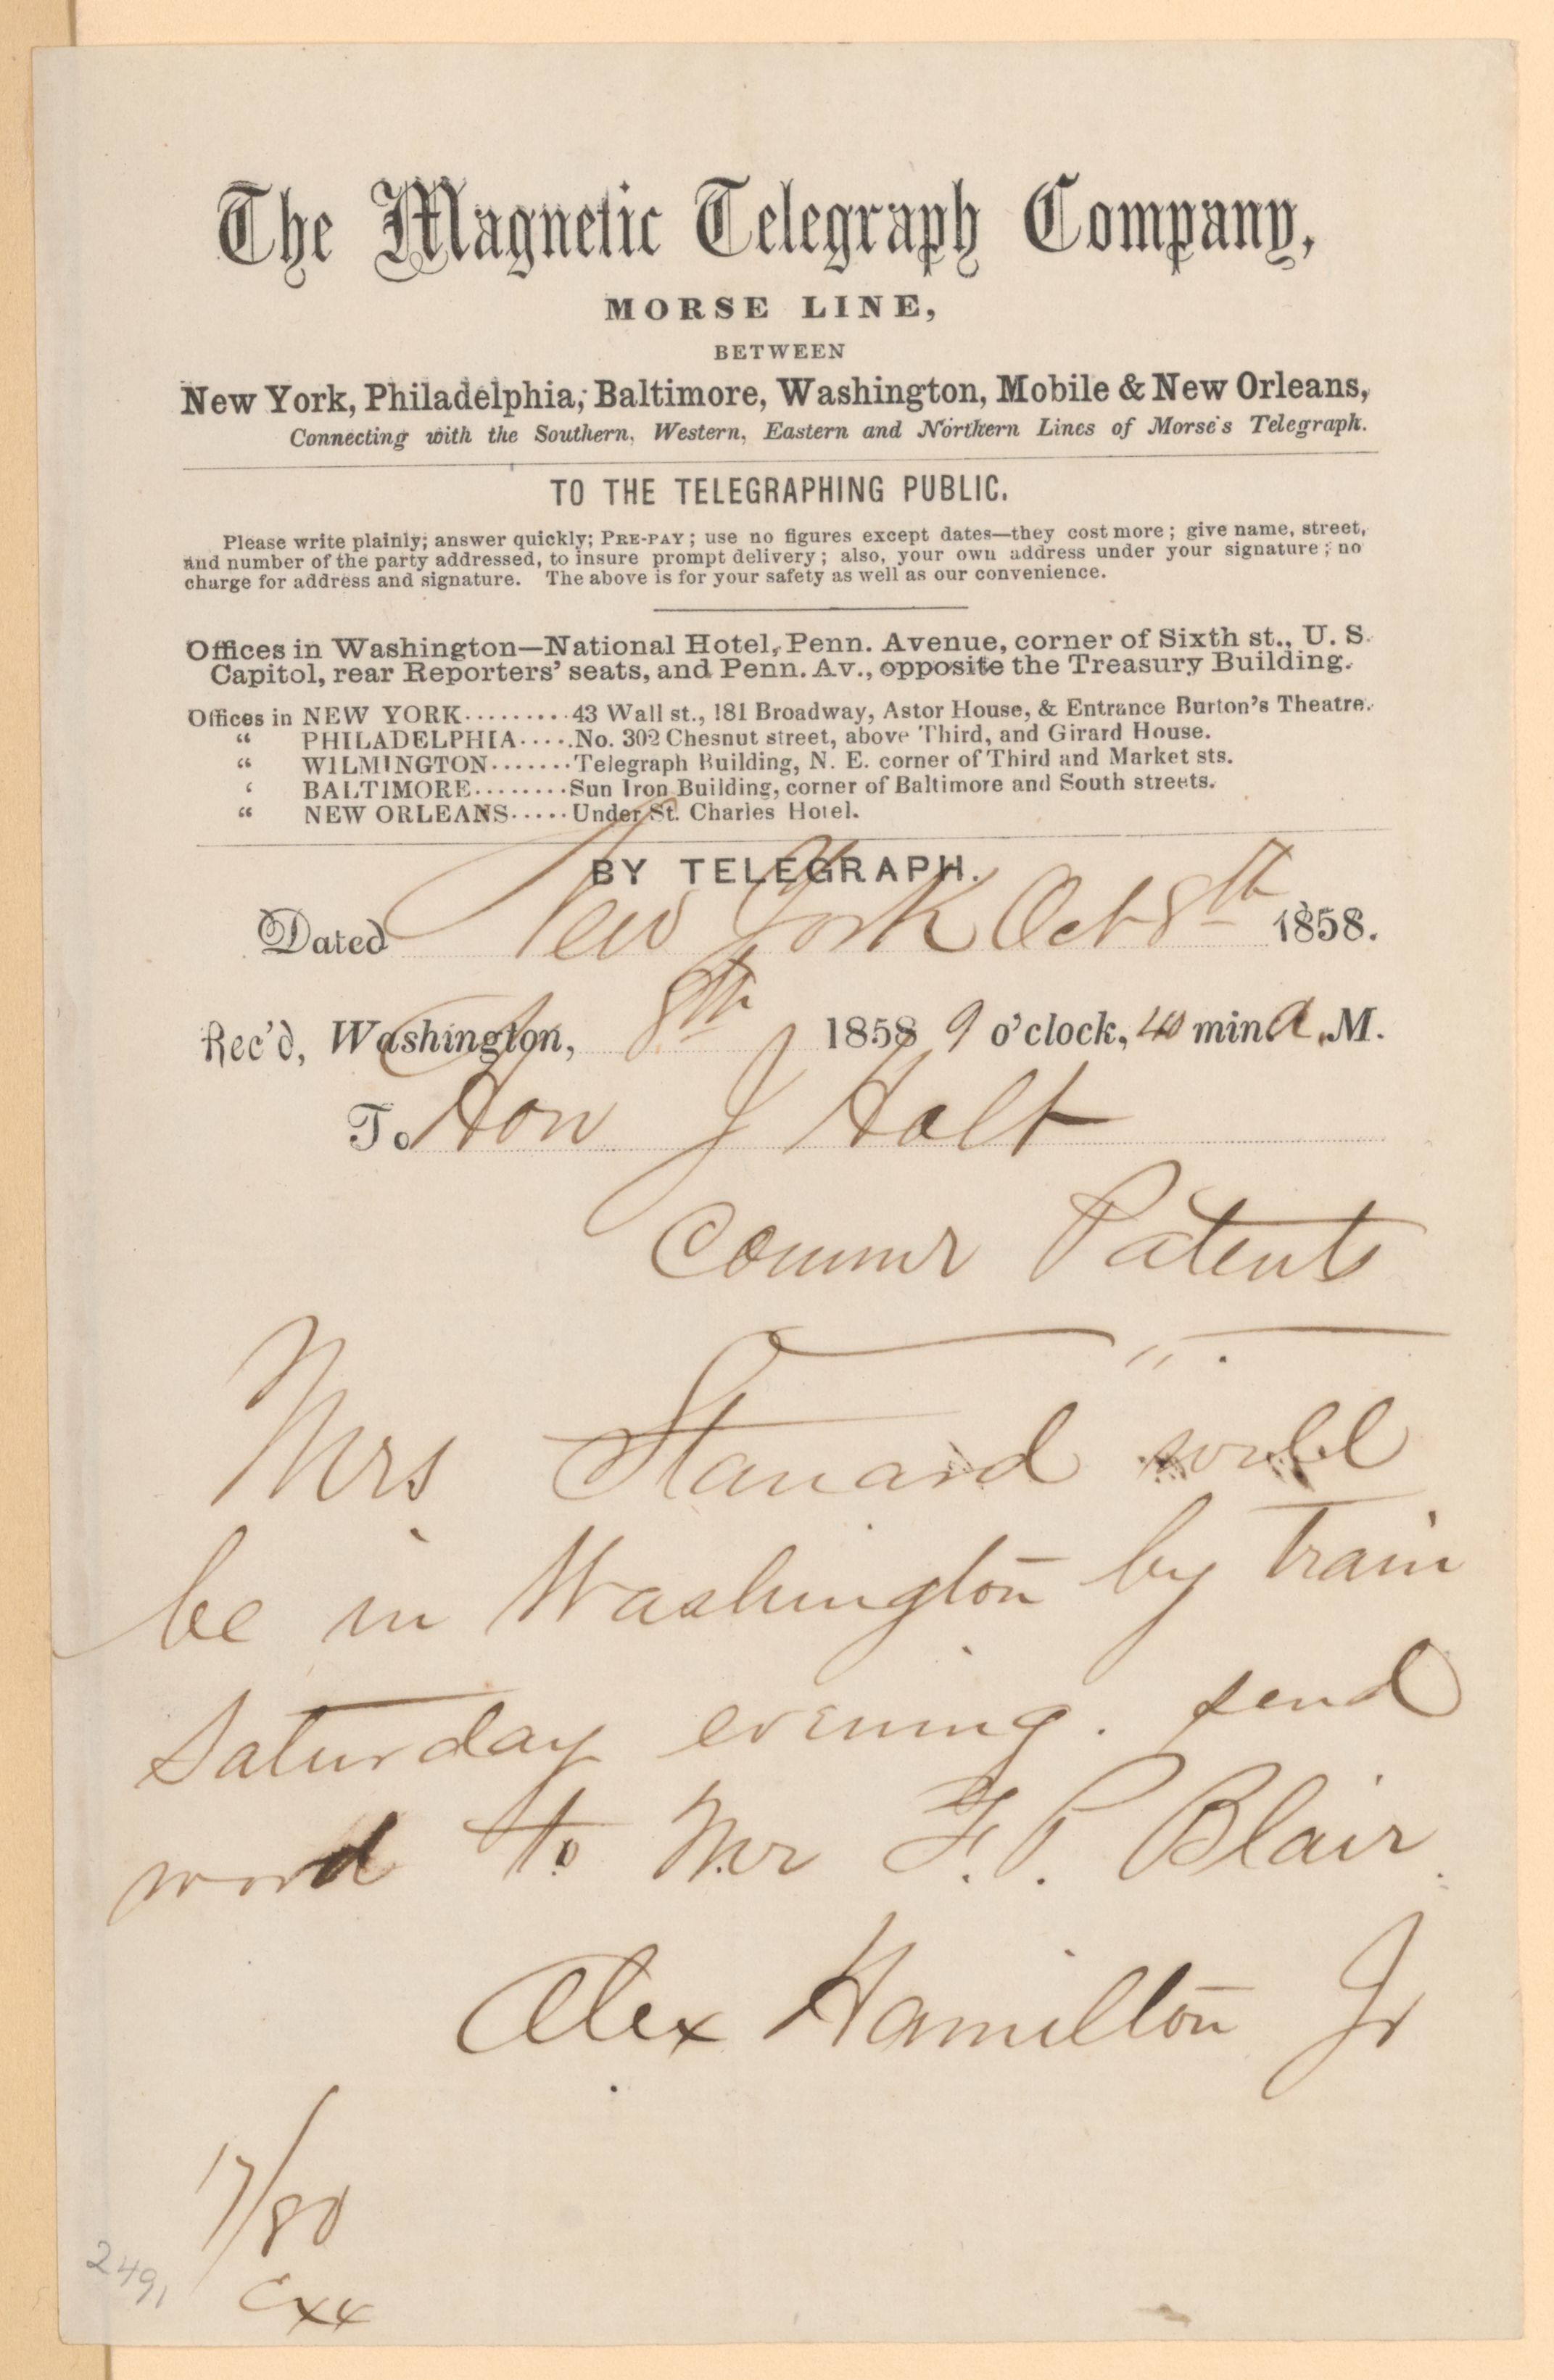 The Magnetic Telegraph Company,
MORSE LINE,
BETWEEN
New York, Philadelphia, Baltimore, Washington, Mobile & New Orleans,
Connecting with the Southern, Western, Eastern and Northern Lines of Morse's Telegraph.
TO THE TELEGRAPHING PUBLIC.
Please write plainly; answer quickly; PRE-PAY; use no figures except dates—they cost more; give name, street,
and number of the party addressed, to insure prompt delivery; also, your own address under your signature; no
charge for address and signature. The above is for your safety as well as our convenience.
Offices in Washington—National Hotel, Penn. Avenue, corner of Sixth st., U. S.
Capitol, rear Reporters' seats, and Penn. Av., opposite the Treasury Building.
Offices in NEW YORK.........43 Wall st., 181 Broadway, Astor House, & Entrance Burton's Theatre.
“ PHILADELPHIA.....No. 302 Chesnut street, above Third, and Girard House.
“ WILMINGTON.......Telegraph Building, N. E. corner of Third and Market sts.
‘ BALTIMORE........Sun Iron Building, corner of Baltimore and South streets.
“ NEW ORLEANS.....Under St. Charles Hotel.
BY TELEGRAPH.
Dated New York Oct 8th 1858.
Rec'd, Washington, 8th 1858 9 o'clock, 40 min. A.M.
To Hon J Holt
Commr Patents
Mrs Stanard will
be in Washington by train
Saturday evening. send
word to Mr F. P. Blair.
Alex Hamilton Jr
17/80
2491